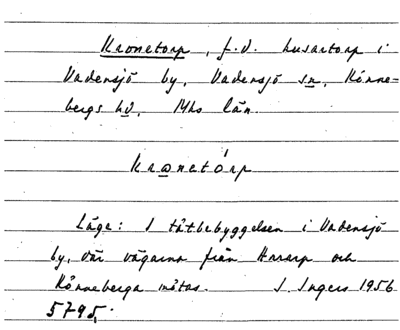 Kronetorp, f.d. husartorp i
Vadensjö by, Vadensjö sn, Rönne-
bergs hd, Mhs län.
Kronetórp
Läge: I tätbebyggelsen i Vadensjö
by, där vägarna från Ö och
Rönneberga mötas. I. Ingers 1956
5795.